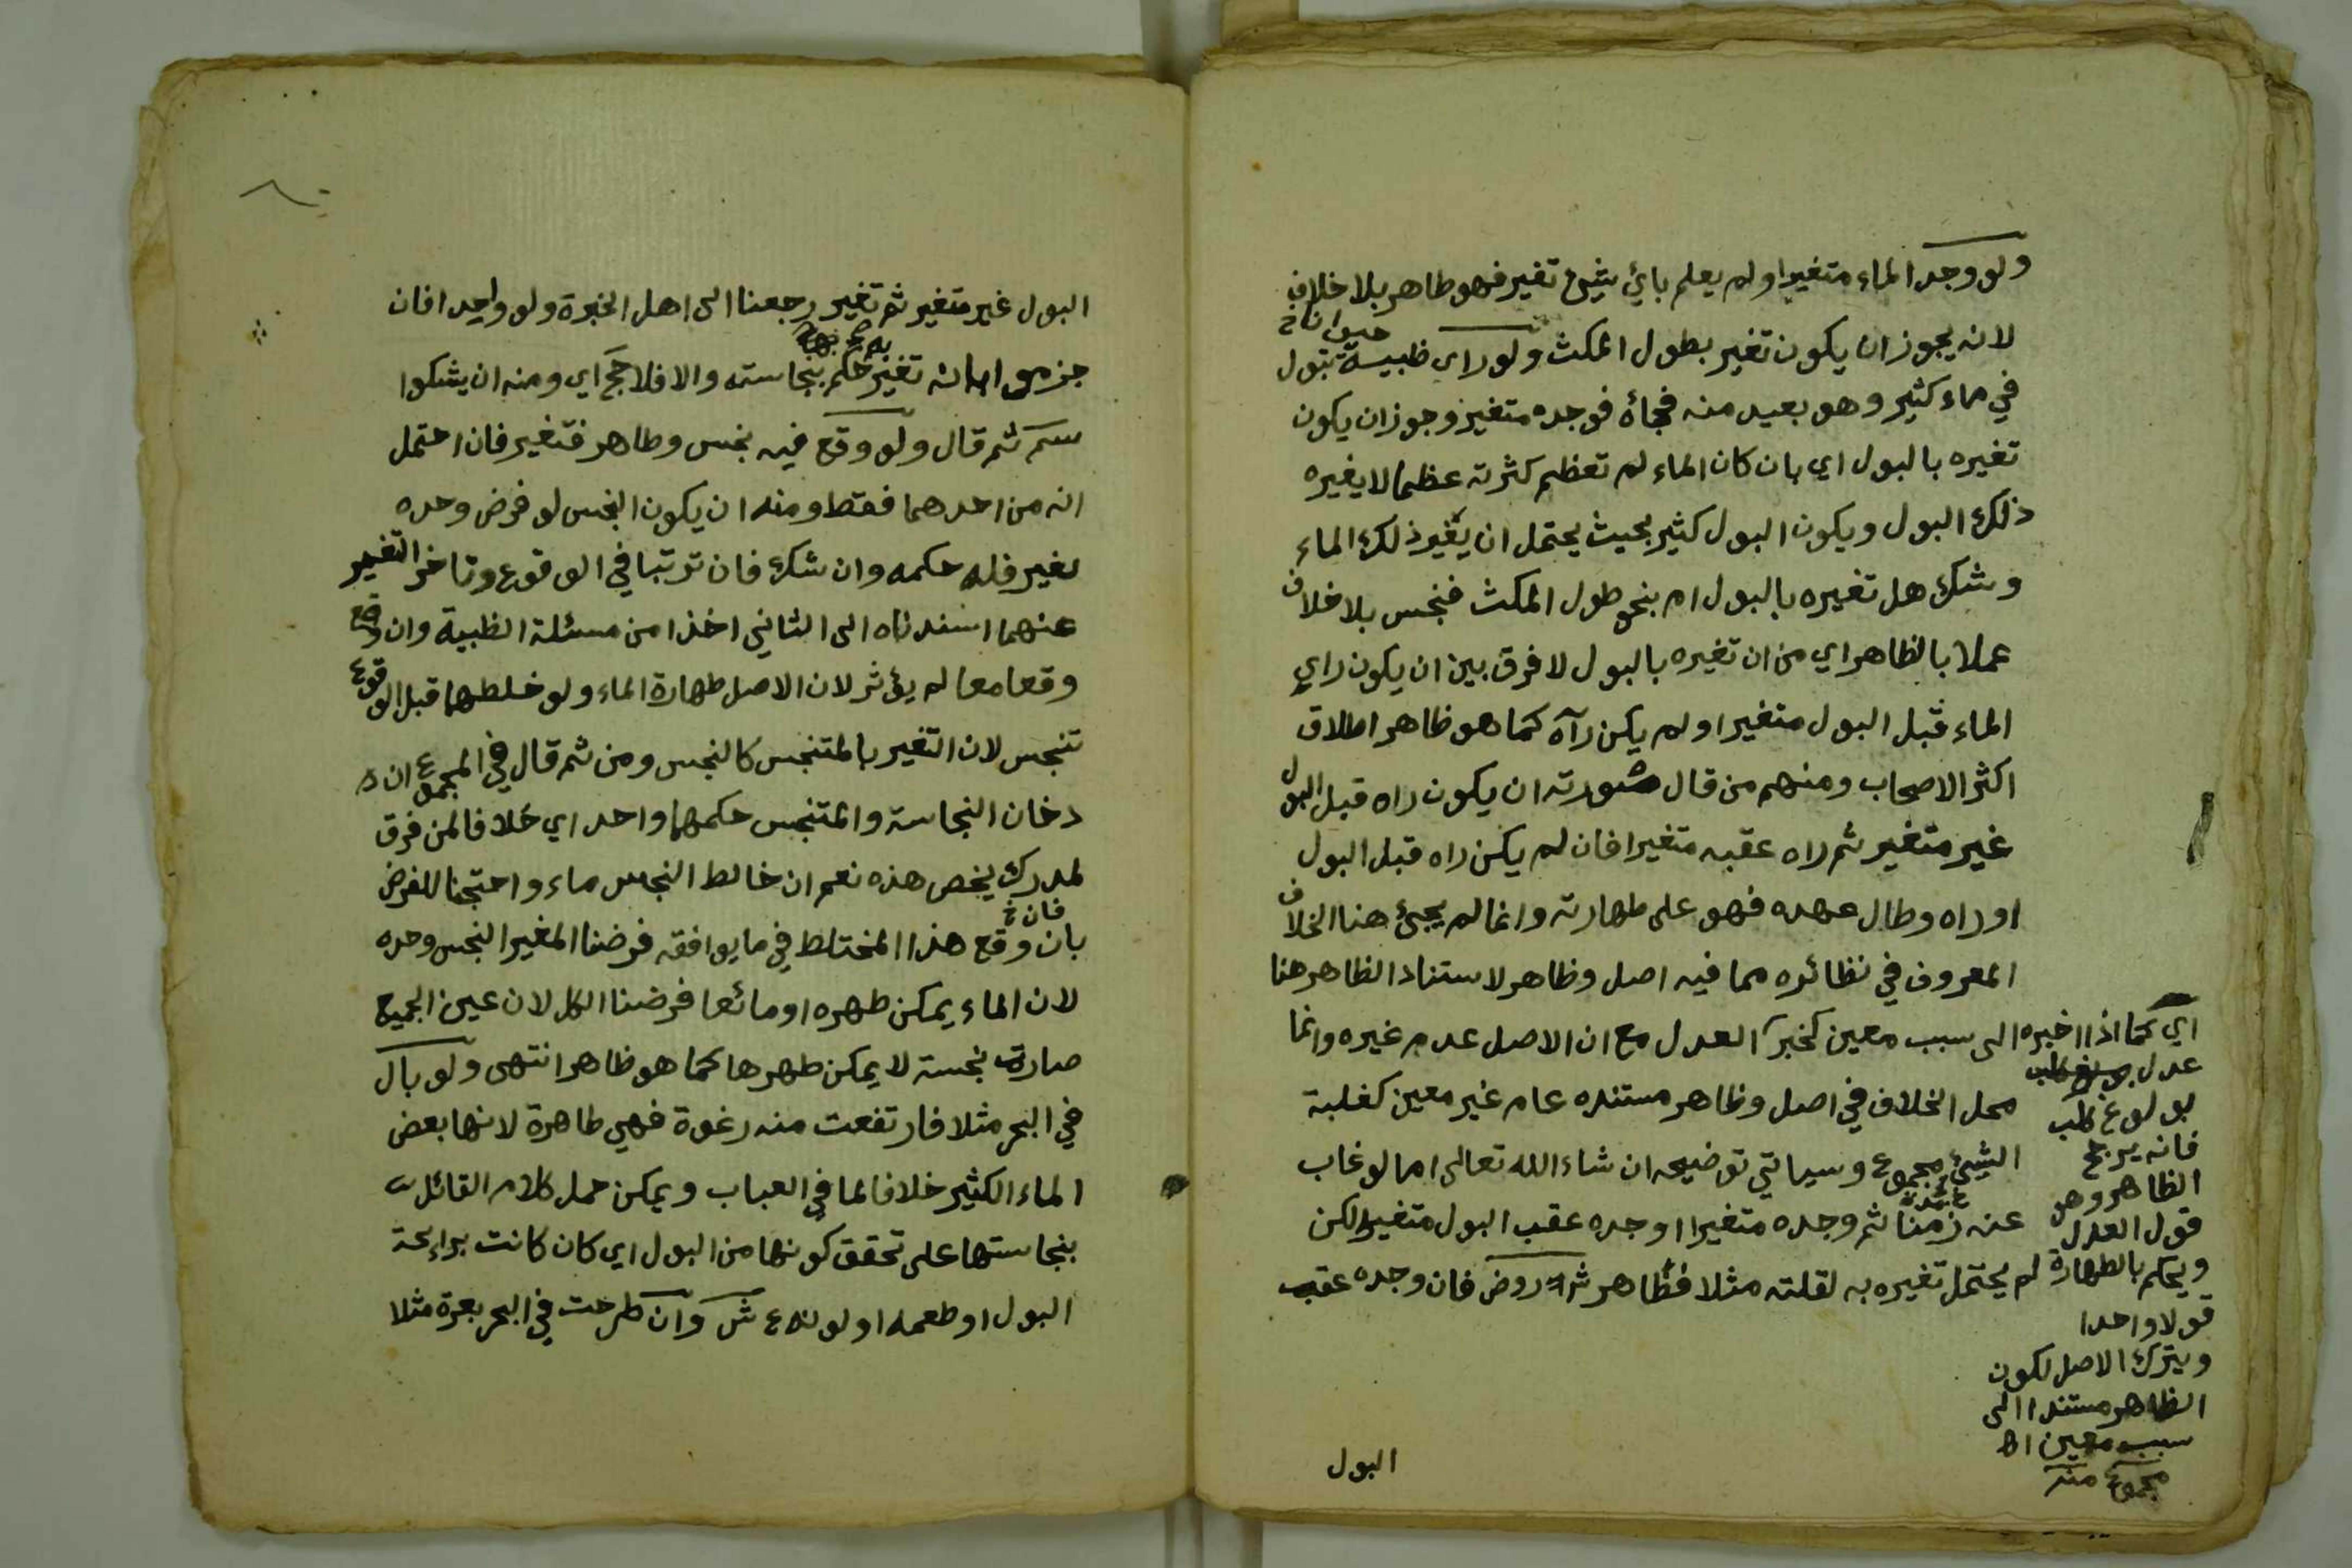 ولو وجد الماء متغيرا ولم يعلم باي شيئ تغير فهو طاهر بلا خلاف
لانه يجوز ان يكون تغير بطول المكث ولو راى ظبية تبول
حيوانا خ
في ماء كثير وهو بعيد منه فجاۀ فوجده متغير وجوز ان يكون
تغيره بالبول اي بان كان الماء لم تعظم كثرته عظما لا يغيره
ذلك البول ويكون البول كثير بحيث يحتمل ان يغير ذلك الماء
وشك هل تغيره بالبول ام بنحو طول المكث فنجس بلا خلاف
عملا بالظاهر اي من ان تغيره بالبول لا فرق بين ان يكون راي
الماء قبل البول متغيرا ولم يكن رآه كما هو ظاهر اطلاق
اكثر الاصحاب ومنهم من قال صورته ان يكون راه قبل البول
غير متغير ثم راه عقبه متغيرا فان لم يكن راه قبل البول
او راه وطال عهده فهو على طهارته وانما لم يجئ هنا الخلاف
المعروف في نظائره مما فيه اصل وظاهر لاستناد الظاهر هنا
الى سبب معين كخبر العدل مع ان الاصل عدم غيره وانما
محل الخلاف في اصل وظاهر مستنده عام غير معين كغلبة
الشيئ مجموع وسياتي توضيحه ان شاء الله تعالى اما لو غاب
عنه زمنا ثم وجده متغيرا اوجده عقب البول متغيرا لكن
لم يحتمل تغيره به لقلته مثلا فظاهر روض فان وجده عقب
البول
اي كما اذا اخبره
عدل
بولوغ كلب
فانه يرجح
الظاهر وهو
قول العدل
ويحكم بالطهارة
قولا واحدا
ويترك الاصل لكون
الظاهر مستندا الى
سبب معين اه
مجموع منه
البول غير متغير ثم تغير رجعنا الى اهل الخبرة ولو واحدا فان
جزموا بانه تغير حكم بنجاسته والا فلا حج اي ومنه ان يشكوا
سم ثم قال ولو وقع فيه نجس وطاهر فتغير فان احتمل
انه من احدهما فقط ومنه ان يكون النجس لو فرض وحده
لغير فله حكمه وان شك فان ترتبا في الوقوع وتاخر التغير
عنهما اسندناه الى الثاني اخذا من مسئلة الظبية وان وقع
وقعا معا لم يؤثر لان الاصل طهارة الماء ولو خلطهما قبل الوقوع
تنجس لان التغير بالمتنجس كالنجس ومن ثم قال في المجموع ان د
دخان النجاسة والمتنجس حكمهما واحد اي خلافا لمن فرق
لمدرك يخص هذه نعم ان خالط النجس ماء واحتجنا للفرض
فان خ
بان وقع هذا المختلط في ما يوافقه فرضنا المغير النجس وحده
لان الماء يمكن طهره او مائعا فرضنا الكل لان عين الجميع
صارت نجسة لا يمكن طهرها كما هو ظاهر انتهى ولو بال
في البحر مثلا فارتفعت منه رغوة فهي طاهرة لانها بعض
الماء الكثير خلافا لما في العباب ويمكن حمل كلام القائل
بنجاستها على تحقق كونها من البول اي كان كانت برايحة
البول او طعمه او لونه ع ش وان طرحت في البحر بعرة مثلا